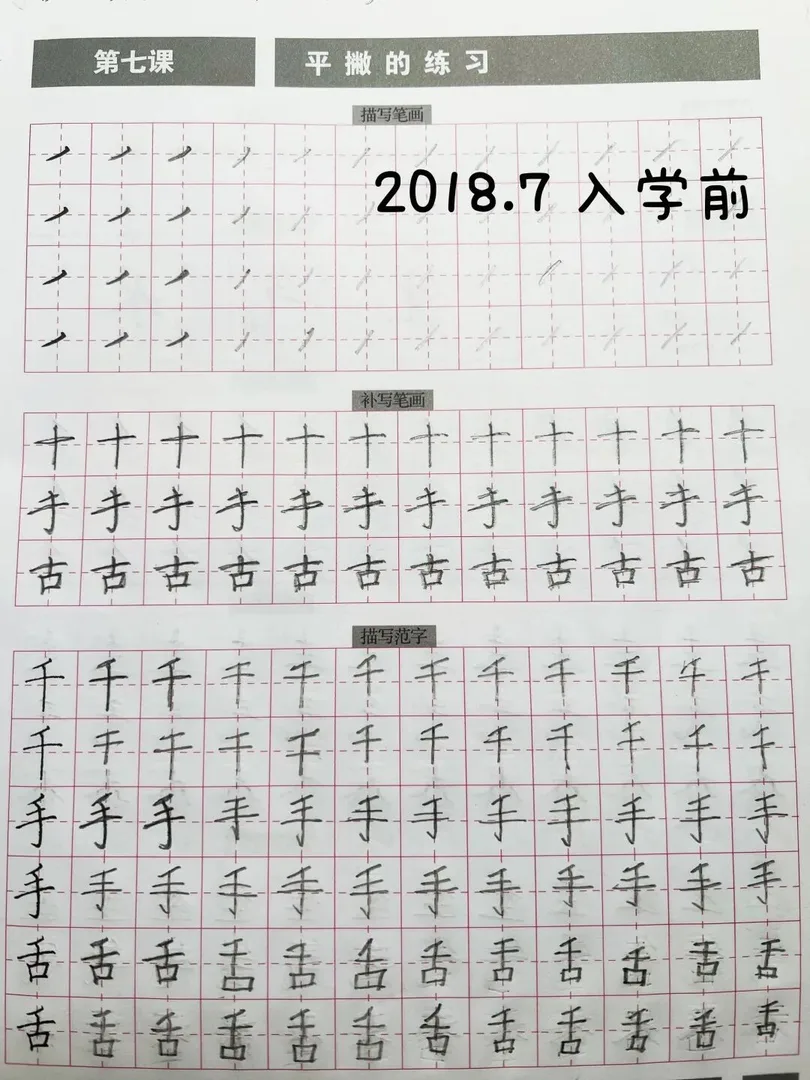 第七课 平撇的练习
描写笔画
2018.7 入学前
补写笔画
十 十 十 十 十 十 十 十 十 十 十 十
手 手 手 手 手 手 手 手 手 手 手 手
古 古 古 古 古 古 古 古 古 古 古 古
描写范字
千 千 千 千 千 千 千 千 千 千 千 千
千 千 千 千 千 千 千 千 千 千 千 千
手 手 手 手 手 手 手 手 手 手 手 手
手 手 手 手 手 手 手 手 手 手 手 手
舌 舌 舌 舌 舌 舌 舌 舌 舌 舌 舌 舌
舌 舌 舌 舌 舌 舌 舌 舌 舌 舌 舌 舌